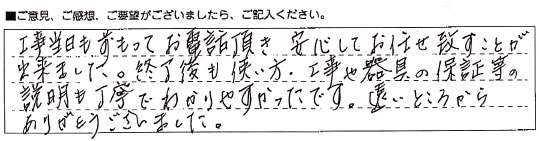 ■ご意見、ご感想、ご要望がございましたら、ご記入ください。
工事当日も前もってお電話頂き 安心してお任せ致すことが
出来ました。終了後も使い方、工事や器具の保証等の
説明も丁寧でわかりやすかったです。遠いところから
ありがとうございました。